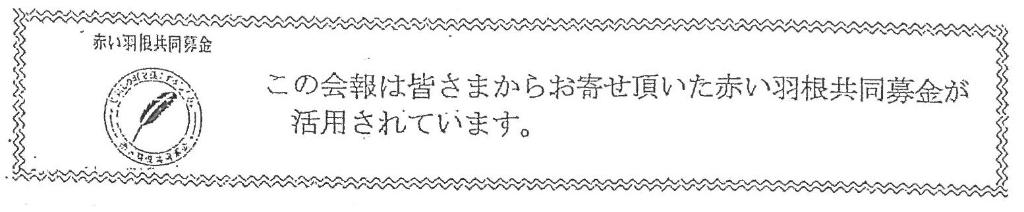 赤い羽根共同募金
この会報は皆さまからお寄せ頂いた赤い羽根共同募金が
活用されています。